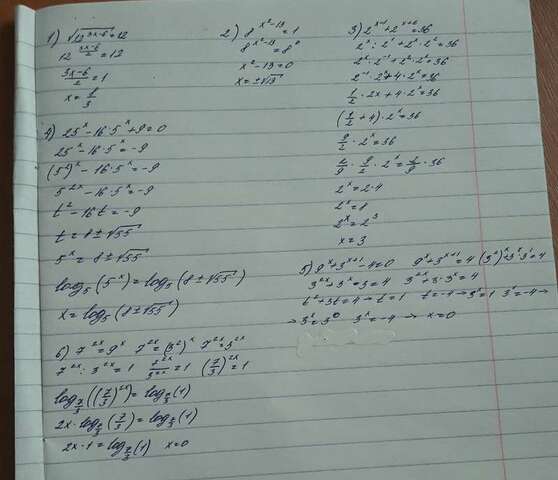 1) √12^(3x-6) = 12
12^((3x-6)/2) = 12
(3x-6)/2 = 1
x = 8/3
2) 8^(x²-13) = 1
8^(x²-13) = 8⁰
x²-13=0
x=±√13
3) 2^(x-1)+2^(x+2)=36
2^x : 2^1 + 2^x · 2² = 36
2^x · 2^-1 + 2^x · 2² = 36
2^-1 · 2^x + 4 · 2^x = 36
1/2 · 2x + 4 · 2^x = 36
(1/2 + 4) · 2^x = 36
9/2 · 2^x = 36
2/9 · 9/2 · 2^x = 2/9 · 36
2^x = 2·4
2^x = 8
2^x = 2³
x = 3
4) 25^x - 16·5^x + 9 = 0
25^x - 16·5^x = -9
(5²)^x - 16·5^x = -9
5^2x - 16·5^x = -9
t² - 16t = -9
t = 8±√55
5^x = 8±√55
log₅(5^x) = log₅(8±√55)
x = log₅(8±√55)
5) 9^x+3^(x+1)-4=0 9^x+3^(x+1)=4 (3²)^x+3^x·3^1=4
3^2x+3^x·3=4 3^2x+3·3^x=4
t²+3t=4 → t=1 t=-4 → 3^x=1 3^x=-4 →
→ 3^x=3⁰ 3^x=-4 → x=0
6) 7^2x=9^x 7^2x=(3²)^x 7^2x=3^2x
7^2x : 3^2x = 1 7^2x/3^2x = 1 (7/3)^2x = 1
log_7/3((7/3)^2x) = log_7/3(1)
2x · log_7/3(7/3) = log_7/3(1)
2x·1 = log_7/3(1) x=0